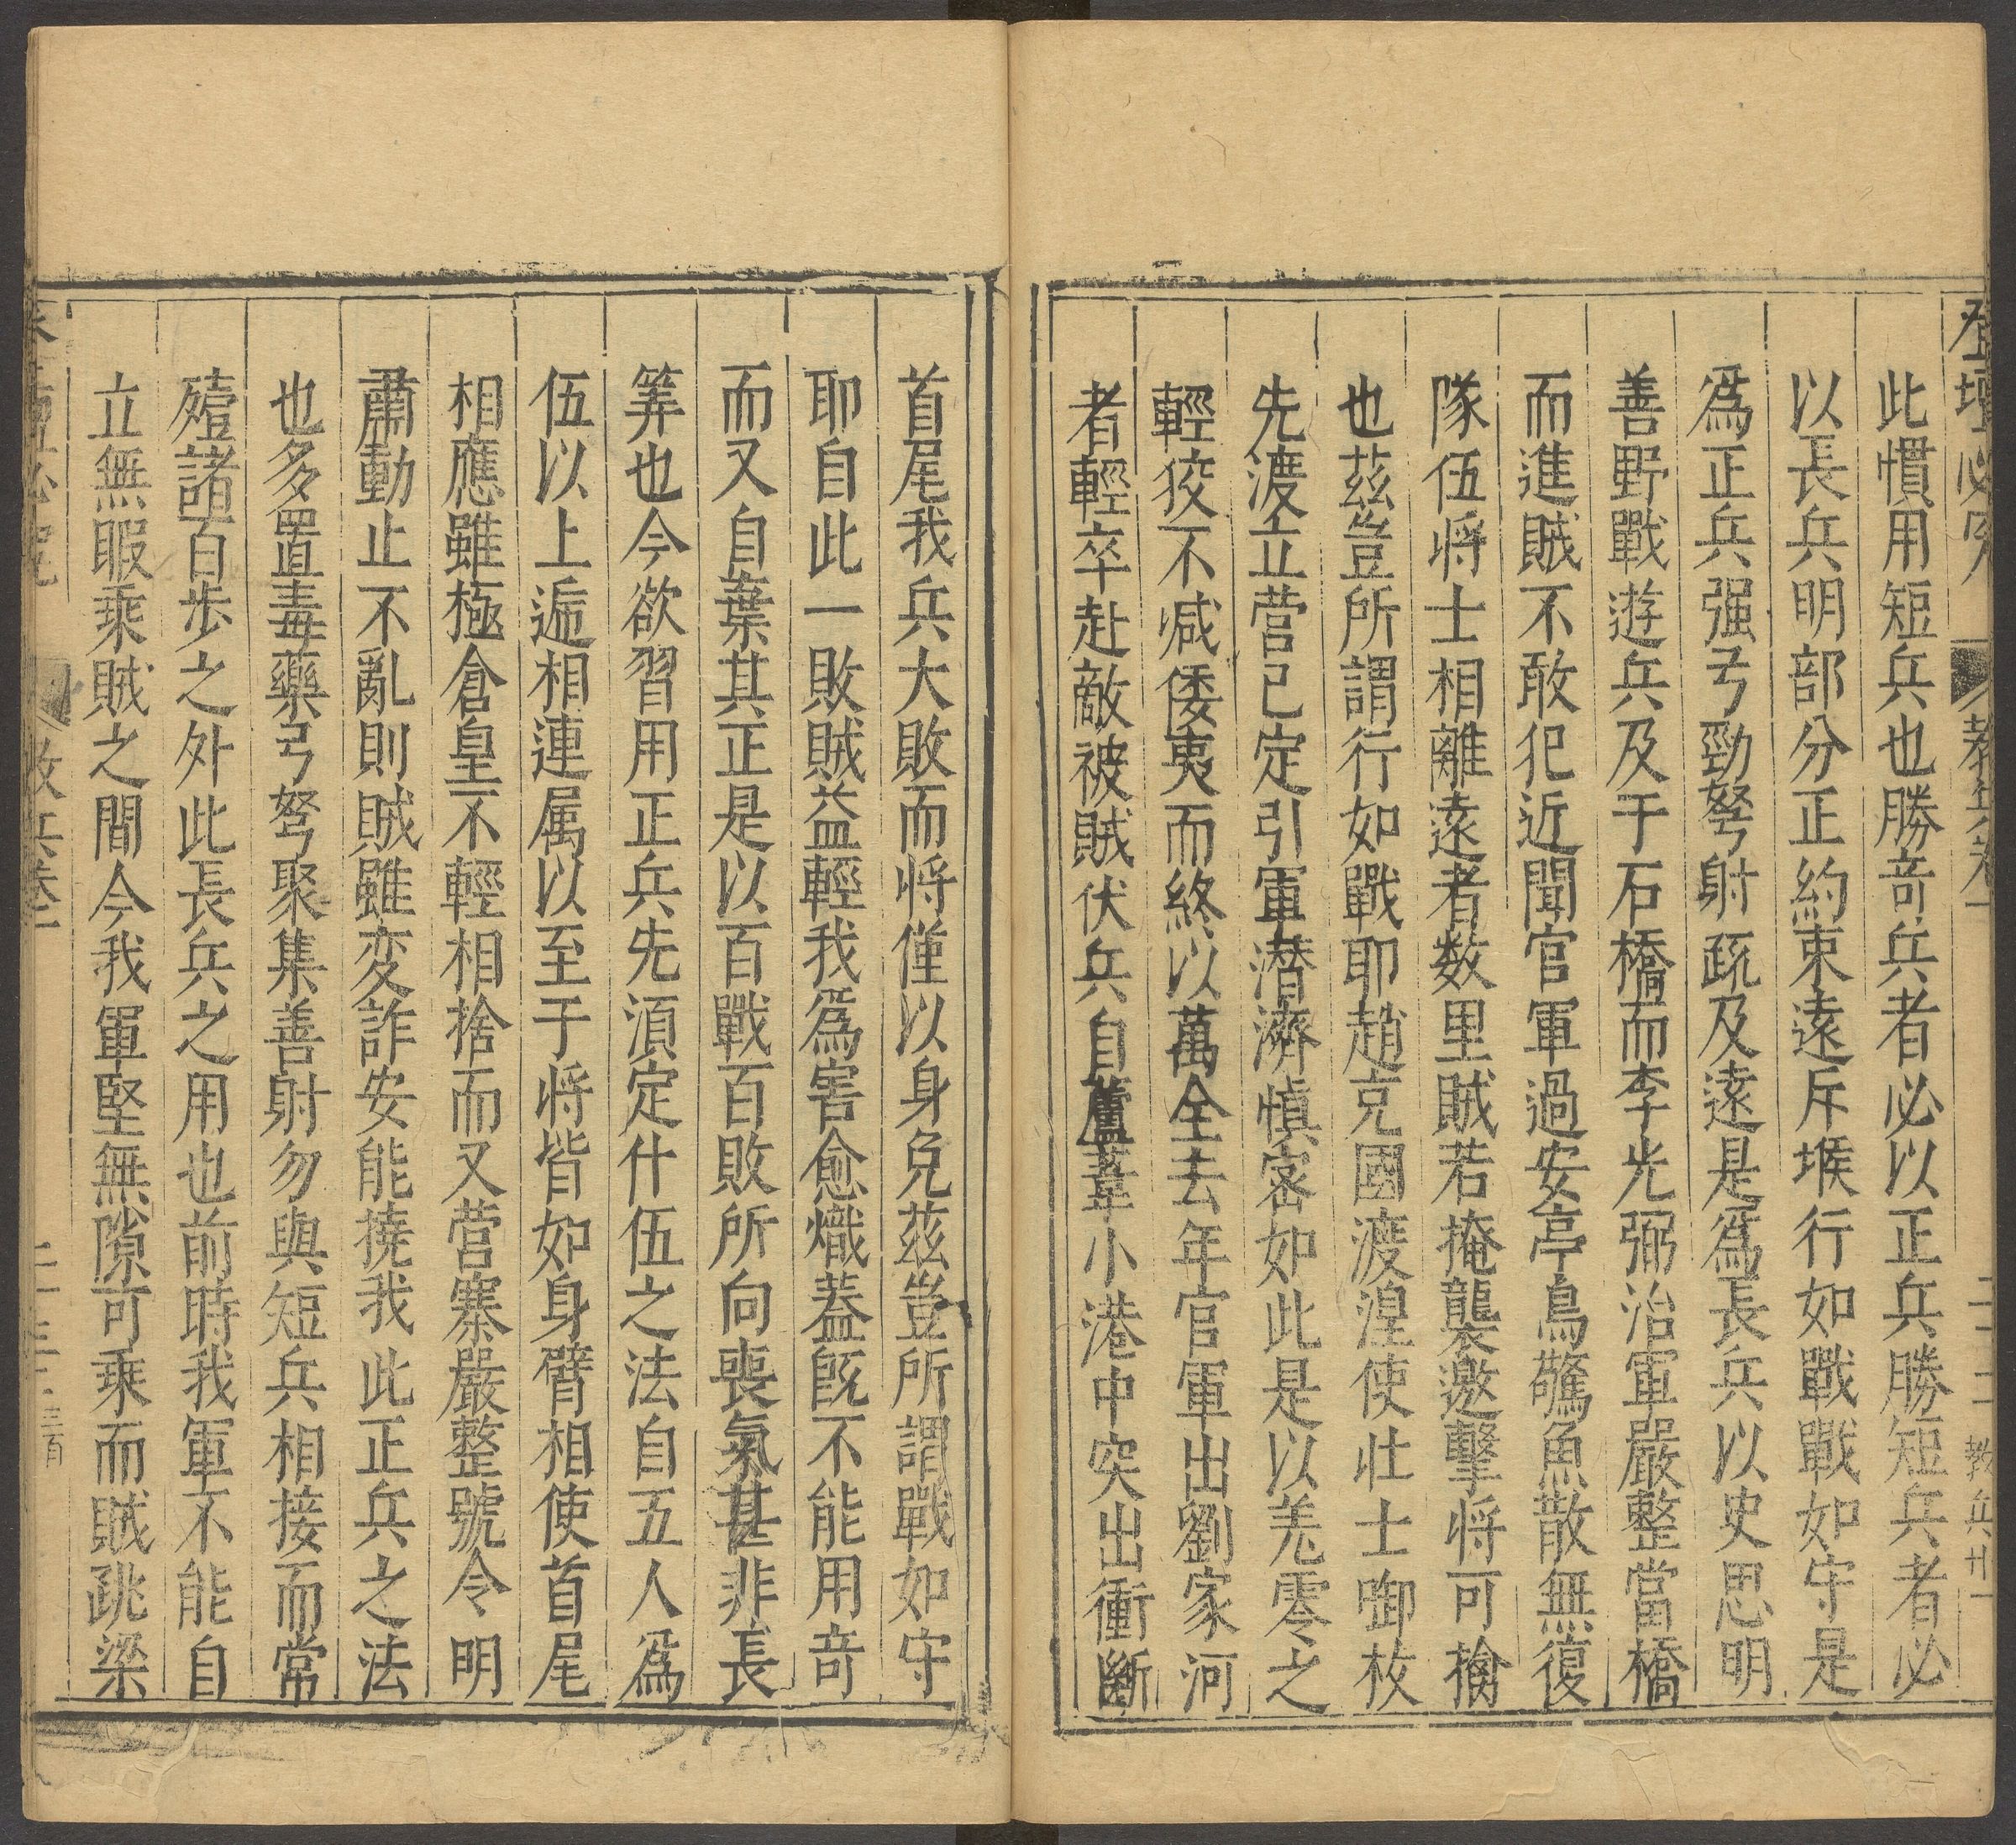 登壇必究
教兵卷一
教兵卅一
此慣用短兵也勝竒兵者必以正兵勝短兵者必
以長兵明部分正約束遠斥堠行如戰戰如守是
爲正兵强弓勁弩射疏及遠是爲長兵以史思明
善野戰遊兵及于石橋而李光弼治軍嚴整當橋
而進賊不敢犯近聞官軍過安亭鳥驚魚散無復
隊伍将士相離遠者数里賊若掩襲邀擊将可擒
也茲豈所謂行如戰耶趙充國渡湟使壯士啣枚
先渡立营已定引軍潜濟慎宻如此是以羌零之
輕狡不减倭夷而終以萬全去年官軍出劉家河
者輕卒赴敵被賊伏兵自蘆葦小港中突出衝斷
首尾我兵大敗而将僅以身免茲豈所謂戰如守
耶自此一敗賊益輕我爲害愈熾蓋旣不能用竒
而又自棄其正是以百戰百敗所向喪氣甚非長
筭也今欲習用正兵先湏定什伍之法自五人爲
伍以上逓相連属以至于将皆如身臂相使首尾
相應雖極倉皇不輕相捨而又营寨嚴整號令明
肅動止不亂則賊雖変詐安能撓我此正兵之法
也多置毒藥弓弩聚集善射勿與短兵相接而常
殪諸百步之外此長兵之用也前時我軍不能自
立無暇乘賊之間今我軍堅無隙可乘而賊跳梁
教兵卷一